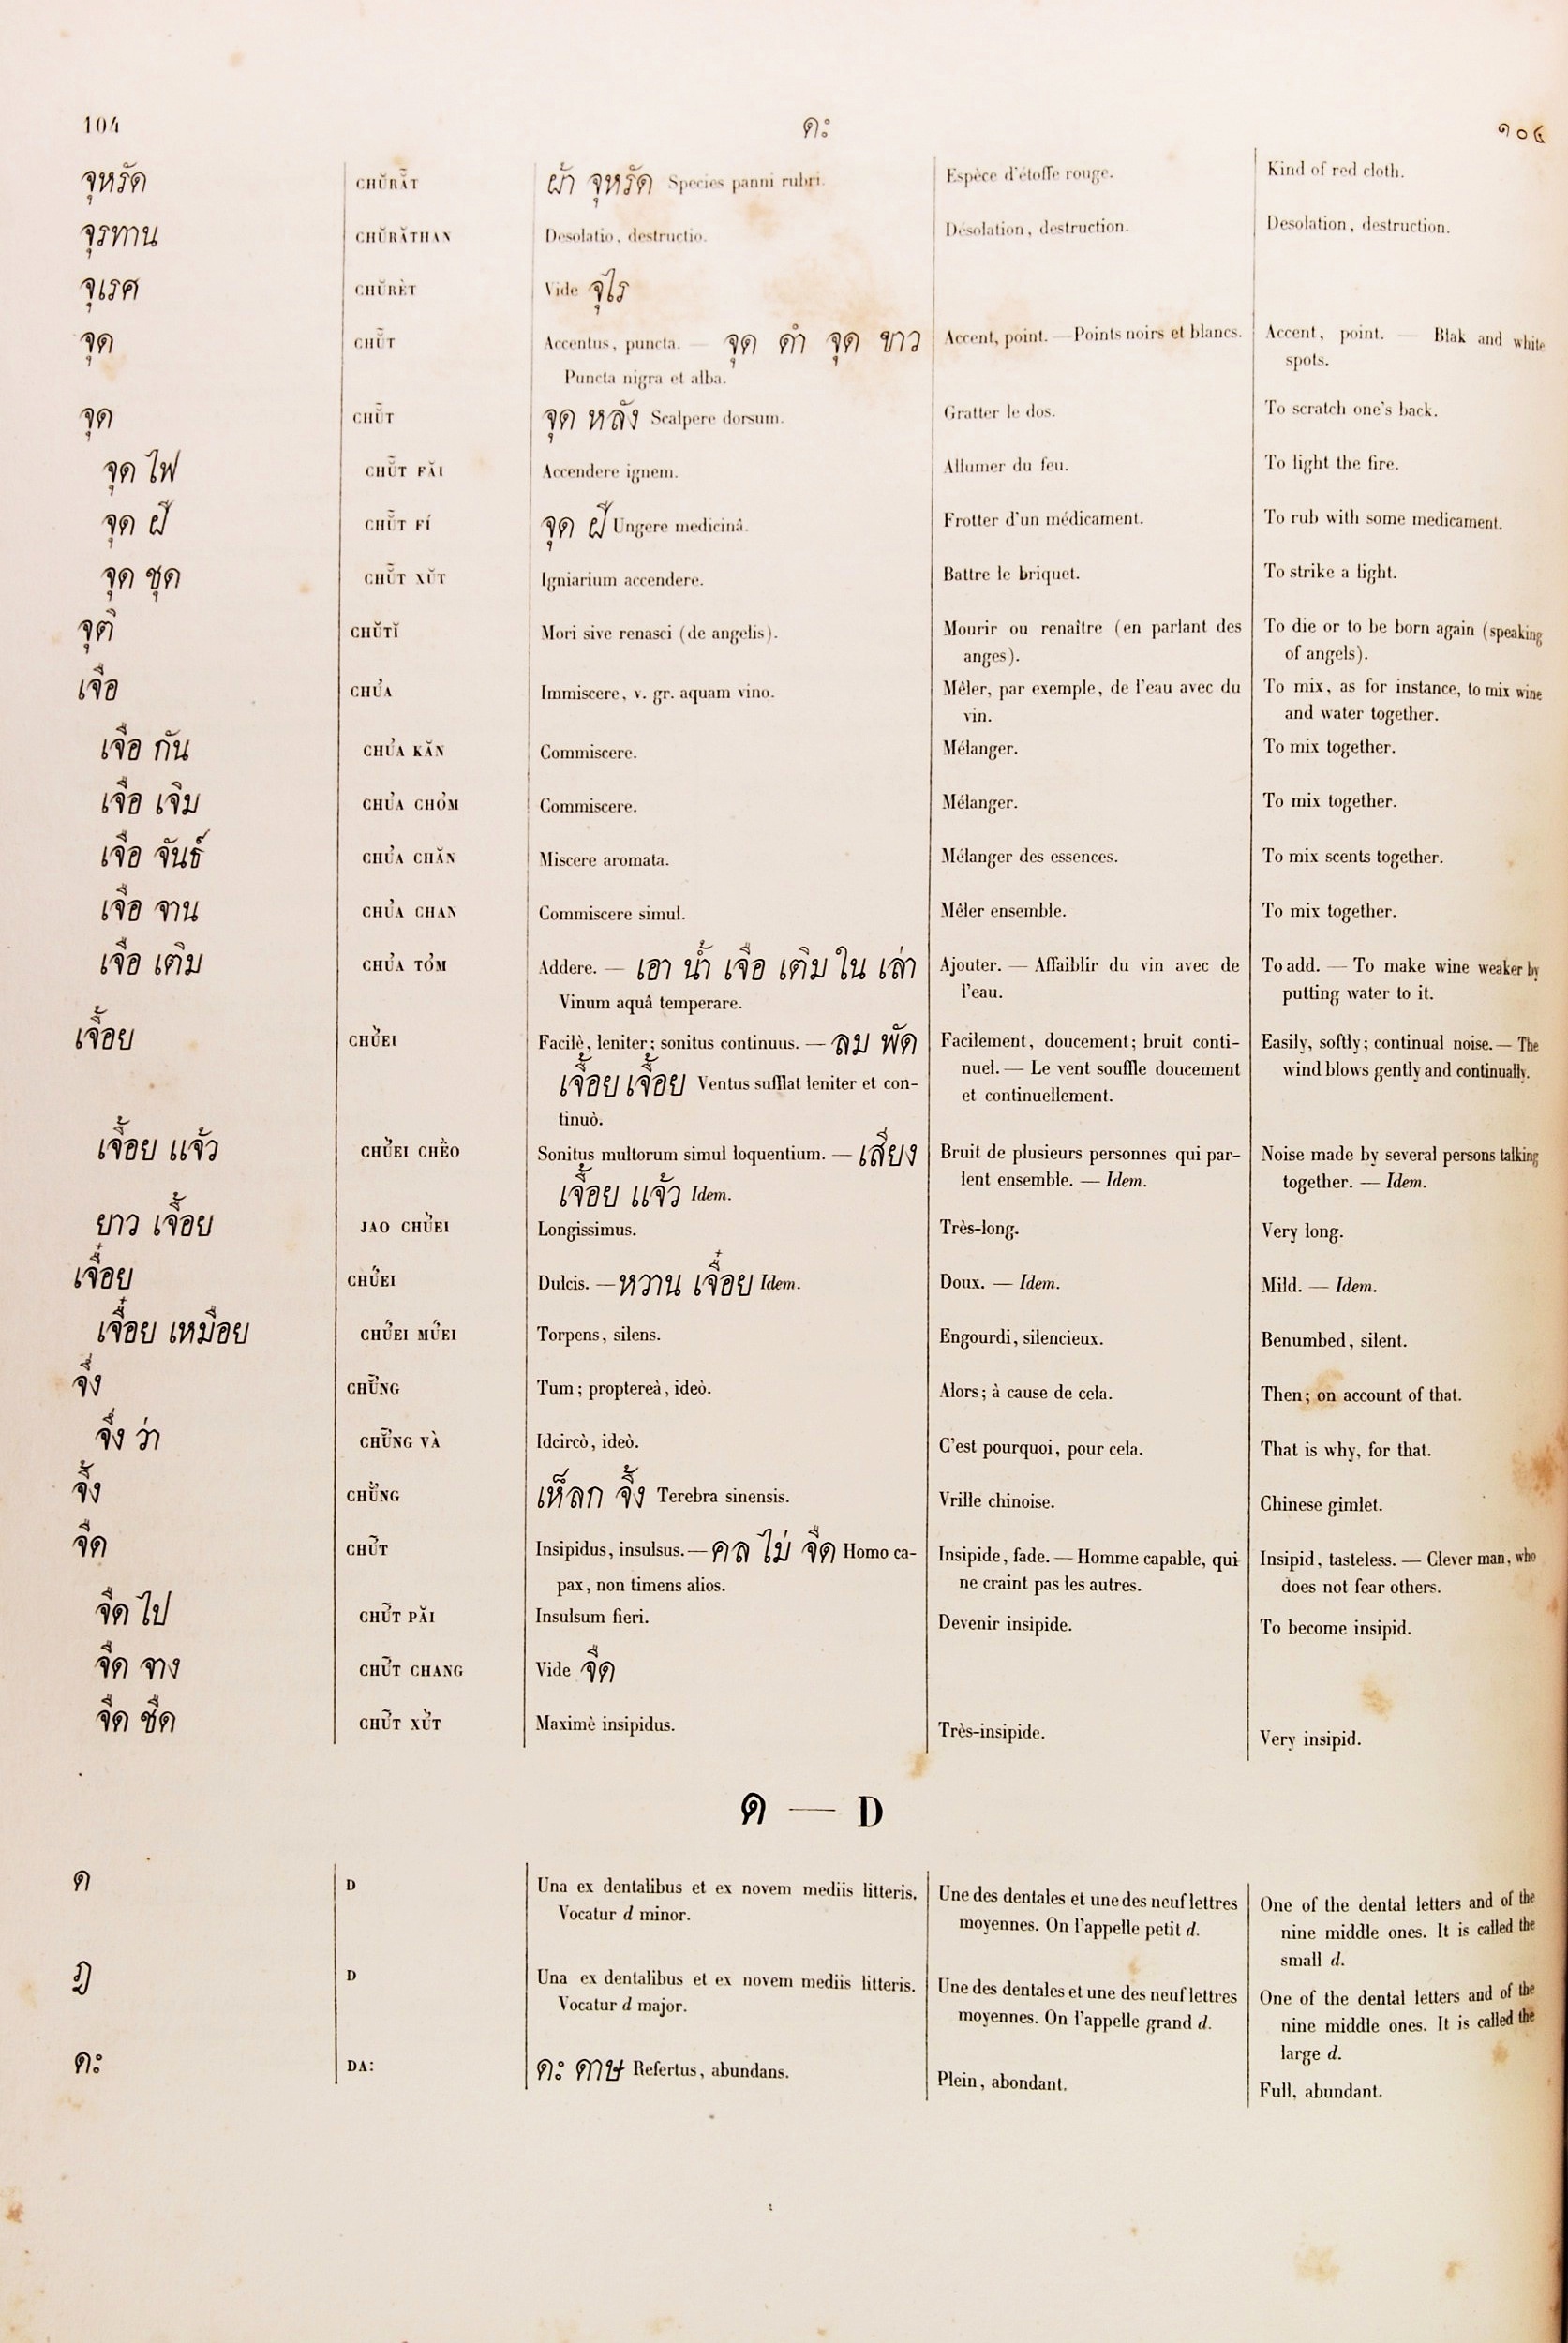 104 ดะ ๑๐๔
จุหรัด CHŬRĂT ผ้า จุหรัด Species panni rubri. Espèce d'étoffe rouge. Kind of red cloth.
จุรทาน CHŬRĂTHAN Desolatio, destructio. Désolation, destruction. Desolation, destruction.
จุเรศ CHŬRÈT Vide จุไร
จุด CHŬT Accentus, puncta. — จุด ดำ จุด ขาว Accent, point. — Points noirs et blancs. Accent, point. — Blak and white
Puncta nigra et alba. spots.
จุด CHŬT จุด หลัง Scalpere dorsum. Gratter le dos. To scratch one's back.
จุด ไฟ CHŬT FĂI Accendere ignem. Allumer du feu. To light the fire.
จุด ฝี CHŬT FÍ จุด ฝี Ungere medicinâ. Frotter d'un médicament. To rub with some medicament.
จุด ชุด CHŬT XŬT Igniarium accendere. Battre le briquet. To strike a light.
จุติ CHŬTĬ Mori sive renasci (de angelis). Mourir ou renaître (en parlant des To die or to be born again (speaking
anges). of angels).
เจือ CHƯA Immiscere, v. gr. aquam vino. Mêler, par exemple, de l'eau avec du To mix, as for instance, to mix wine
vin. and water together.
เจือ กัน CHƯA KĂN Commiscere. Mélanger. To mix together.
เจือ เจิม CHƯA CHƠM Commiscere. Mélanger. To mix together.
เจือ จันธ์ CHƯA CHĂN Miscere aromata. Mélanger des essences. To mix scents together.
เจือ จาน CHƯA CHAN Commiscere simul. Mêler ensemble. To mix together.
เจือ เติม CHƯA TƠM Addere. — เอา น้ำ เจือ เติม ใน เล่า Ajouter. — Affaiblir du vin avec de To add. — To make wine weaker by
Vinum aquâ temperare. l'eau. putting water to it.
เจื้อย CHỪEI Facilè, leniter; sonitus continuus. — ลม พัด Facilement, doucement; bruit conti- Easily, softly; continual noise. — The
เจื้อย เจื้อย Ventus sufflat leniter et con- nuel. — Le vent souffle doucement wind blows gently and continually.
tinuò. et continuellement.
เจื้อย แจ้ว CHỪEI CHÈO Sonitus multorum simul loquentium. — เสียง Bruit de plusieurs personnes qui par- Noise made by several persons talking
เจื้อย แจ้ว Idem. lent ensemble. — Idem. together. — Idem.
ยาว เจื้อย JAO CHỪEI Longissimus. Très-long. Very long.
เจื๋อย CHỨEI Dulcis. — หวาน เจื๋อย Idem. Doux. — Idem. Mild. — Idem.
เจื๋อย เหมือย CHỨEI MỨEI Torpens, silens. Engourdi, silencieux. Benumbed, silent.
จึ่ง CHƯNG Tum; proptereà, ideò. Alors; à cause de cela. Then; on account of that.
จึ่ง ว่า CHƯNG VÀ Idcircò, ideò. C'est pourquoi, pour cela. That is why, for that.
จึ้ง CHỪNG เห็ลก จึ้ง Terebra sinensis. Vrille chinoise. Chinese gimlet.
จืด CHƯT Insipidus, insulsus. — คล ไม่ จืด Homo ca- Insipide, fade. — Homme capable, qui Insipid, tasteless. — Clever man, who
pax, non timens alios. ne craint pas les autres. does not fear others.
จืด ไป CHƯT PĂI Insulsum fieri. Devenir insipide. To become insipid.
จืด จาง CHƯT CHANG Vide จืด
จืด ชืด CHƯT XỪT Maximè insipidus. Très-insipide. Very insipid.
ด — D
ด D Una ex dentalibus et ex novem mediis litteris. Une des dentales et une des neuf lettres One of the dental letters and of the
Vocatur d minor. moyennes. On l'appelle petit d. nine middle ones. It is called the
small d.
ฎ D Una ex dentalibus et ex novem mediis litteris. Une des dentales et une des neuf lettres One of the dental letters and of the
Vocatur d major. moyennes. On l'appelle grand d. nine middle ones. It is called the
large d.
ดะ DA: ดะ ดาษ Refertus, abundans. Plein, abondant. Full, abundant.